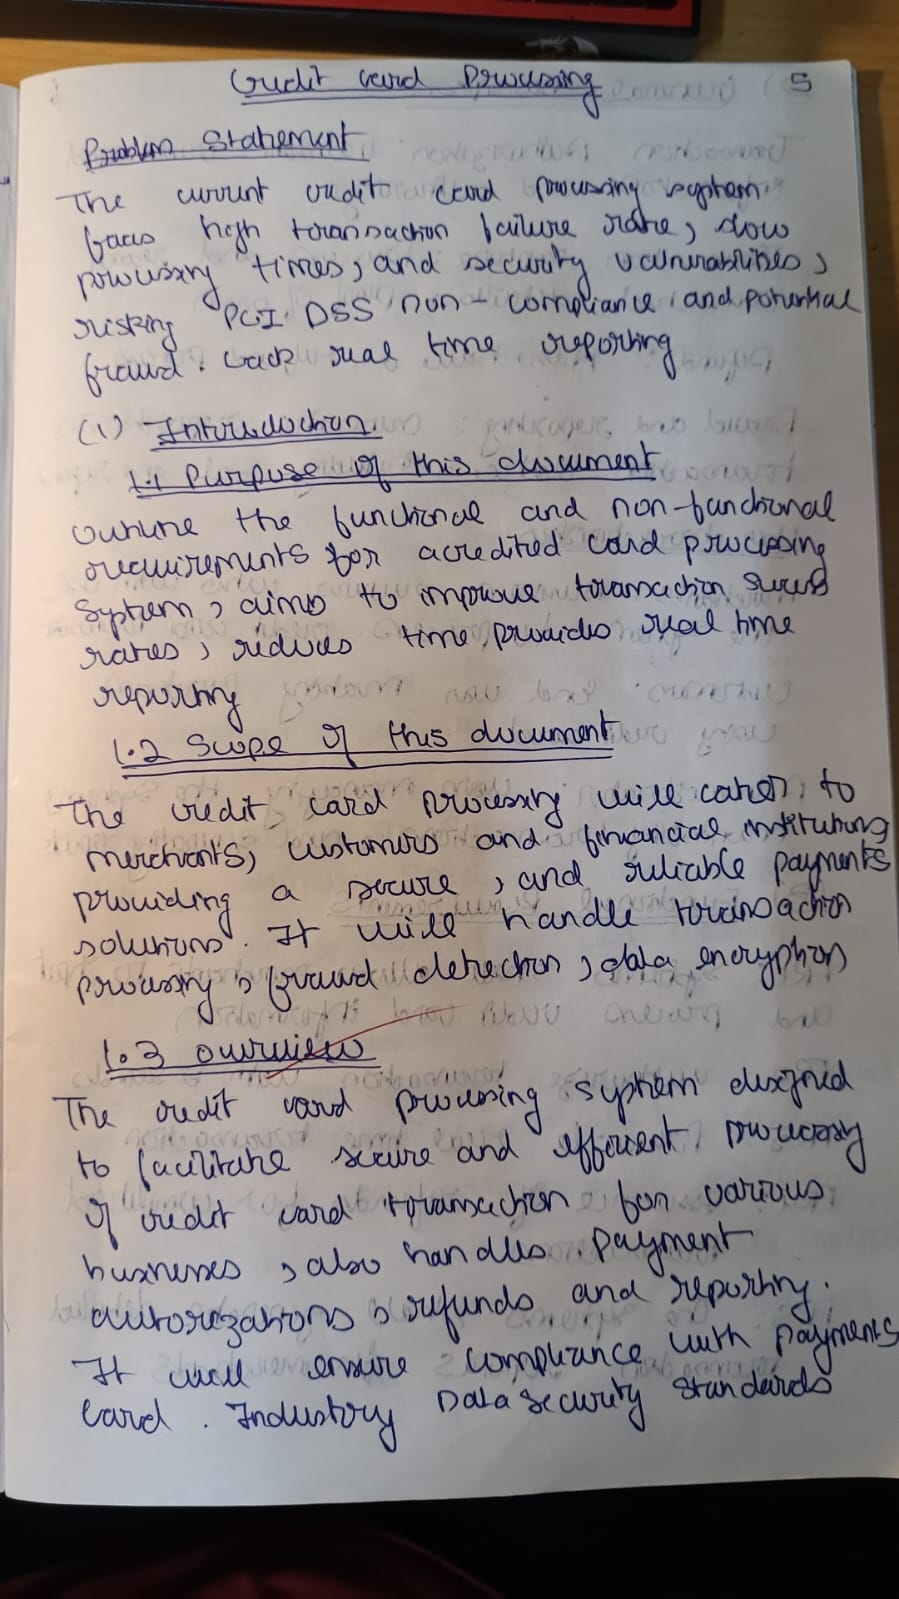 Credit Card Processing 5
Problem Statement
The current credit card processing system
faces high transaction failure rate, slow
processing times, and security vulnerabilities,
risking PCI DSS non-compliance and potential
fraud. Lack real time reporting
(1) Introduction
1.1 Purpose of this document
Outline the functional and non-functional
requirements for acredited card processing
system, aims to improve transaction success
rates, reduces time, provides real time
reporting
1.2 Scope of this document
The credit card processing will cater to
merchants, customers and financial institutions
providing a secure, and reliable payments
solutions. It will handle transaction
processing, fraud detection, data encryption
1.3 Overview
The credit card processing system designed
to facilitate secure and efficient processing
of credit card transaction for various
businesses, also handles payment
autorizations, refunds and reporting.
It will ensure compliance with payments
Card. Industry Data Security Standards